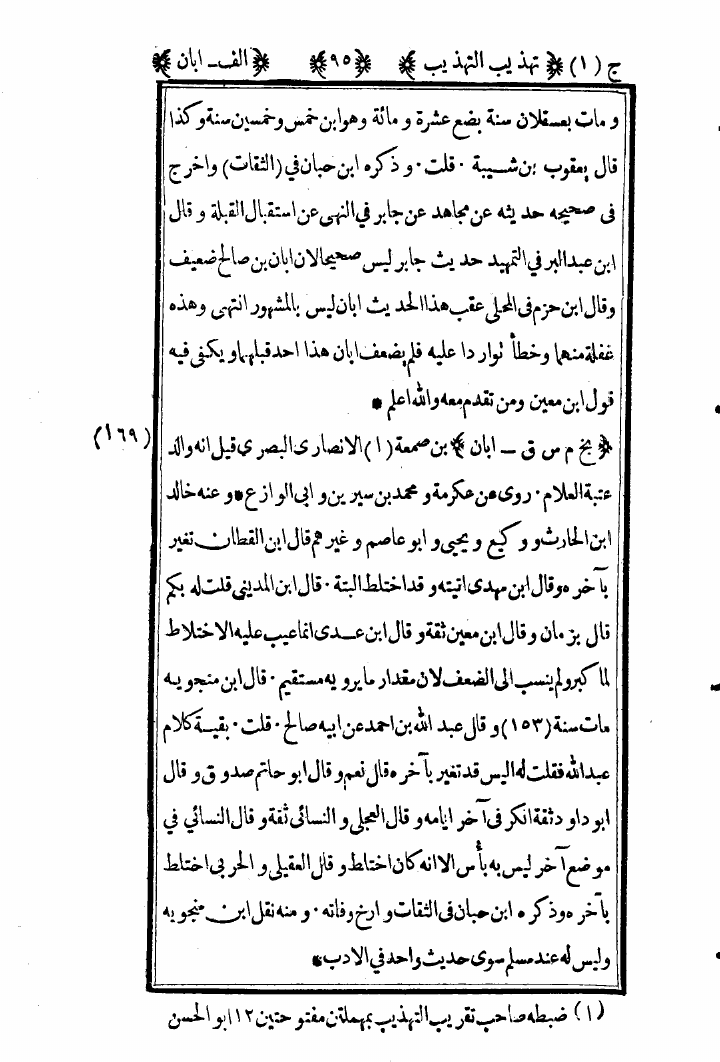 ج (١) ﴿ تهذيب التهذيب ﴾ ﴿ ٩٥ ﴾ ﴿ الف ـ ابان ﴾
و مات بعسقلان سنة بضع عشرة و مائة وهو ابن خمس وخمسين سنة وكذا
قال يعقوب بن شيبة ٠ قلت ٠ و ذكره ابن حبان في (الثقات) واخرج
فى صحيحه حديثه عن مجاهد عن جابر في النهى عن استقبال القبلة و قال
ابن عبدالبر في التمهيد حديث جابر ليس صحيحا لان ابان بن صالح ضعيف
وقال ابن حزم فى المحلى عقب هذا الحديث ابان ليس بالمشهور انتهى وهذه
غفلة منهما وخطأ توار دا عليه فلم يضعف ابان هذا احد قبلهما و يكفى فيه
قول ابن معين ومن تقدم معه والله اعلم *
(١٦٩) ﴿ بخ م س ق ـ ابان ﴾ بن صمعة (١) الانصارى البصري قيل انه والد
عتبة الغلام ٠ روى عن عكرمة و محمد بن سيرين و ابى الوازع * و عنه خالد
ابن الحارث و وكيع و يحيى و ابو عاصم و غيرهم قال ابن القطان تغير
بآخره وقال ابن مهدى اتيته و قد اختلط البتة ٠ قال ابن المدينى قلت له بكم
قال بزمان وقال ابن معين ثقة و قال ابن عدى انما عيب عليه الاختلاط
لما كبر ولم ينسب الى الضعف لان مقدار ما يرويه مستقيم ٠ قال ابن منجويه
مات سنة (١٥٣) و قال عبد الله بن احمد عن ابيه صالح ٠ قلت ٠ بقية كلام
عبدالله فقلت له اليس قد تغير بآخره قال نعم و قال ابو حاتم صدوق و قال
ابو داود ثقة انكر فى آخر ايامه و قال العجلى و النسائى ثقة و قال النسائي في
موضع آخر ليس به بأس الا انه كان اختلط و قال العقيلى و الحربى اختلط
بآخره وذكره ابن حبان فى الثقات و ارخ وفاته ٠ و منه نقل ابن منجويه
وليس له عند مسلم سوى حديث واحد في الادب *
(١) ضبطه صاحب تقريب التهذيب بمهملتن مفتوحتين ١٢ ابو الحسن